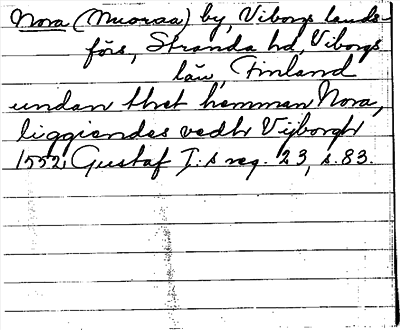 Nora (Nuoraa) by, Viborgs lands-
förs, Stranda hd, Viborgs
län, Finland
undan thet hemman Nora,
liggiendes vedh Vijborgh
1552, Gustaf I:s reg. 23, s. 83.